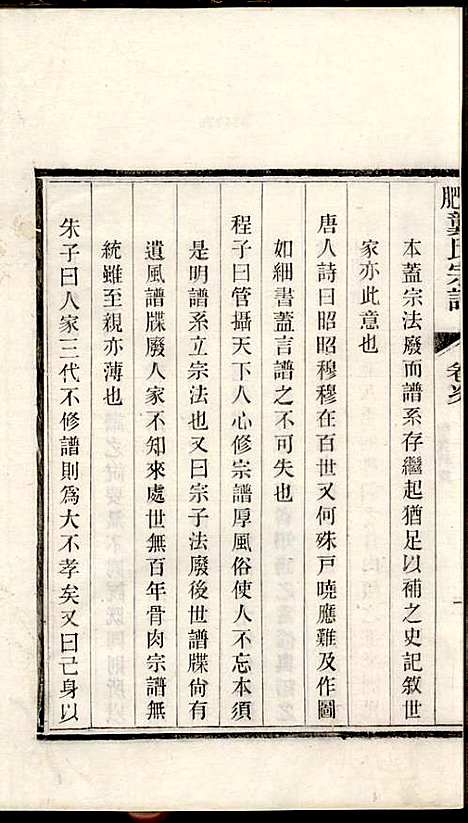 肥龔氏宗譜
本蓋宗法廢而譜系存繼起猶足以補之史記敘世
家亦此意也
唐人詩曰昭昭穆穆在百世又何殊戸曉應難及作圖
如細書蓋言譜之不可失也
程子曰管攝天下人心修宗譜厚風俗使人不忘本須
是明譜系立宗法也又曰宗子法廢後世譜牒尙有
遺風譜牒廢人家不知來處世無百年骨肉宗譜無
統雖至親亦薄也
朱子曰人家三代不修譜則為大不孝矣又曰己身以